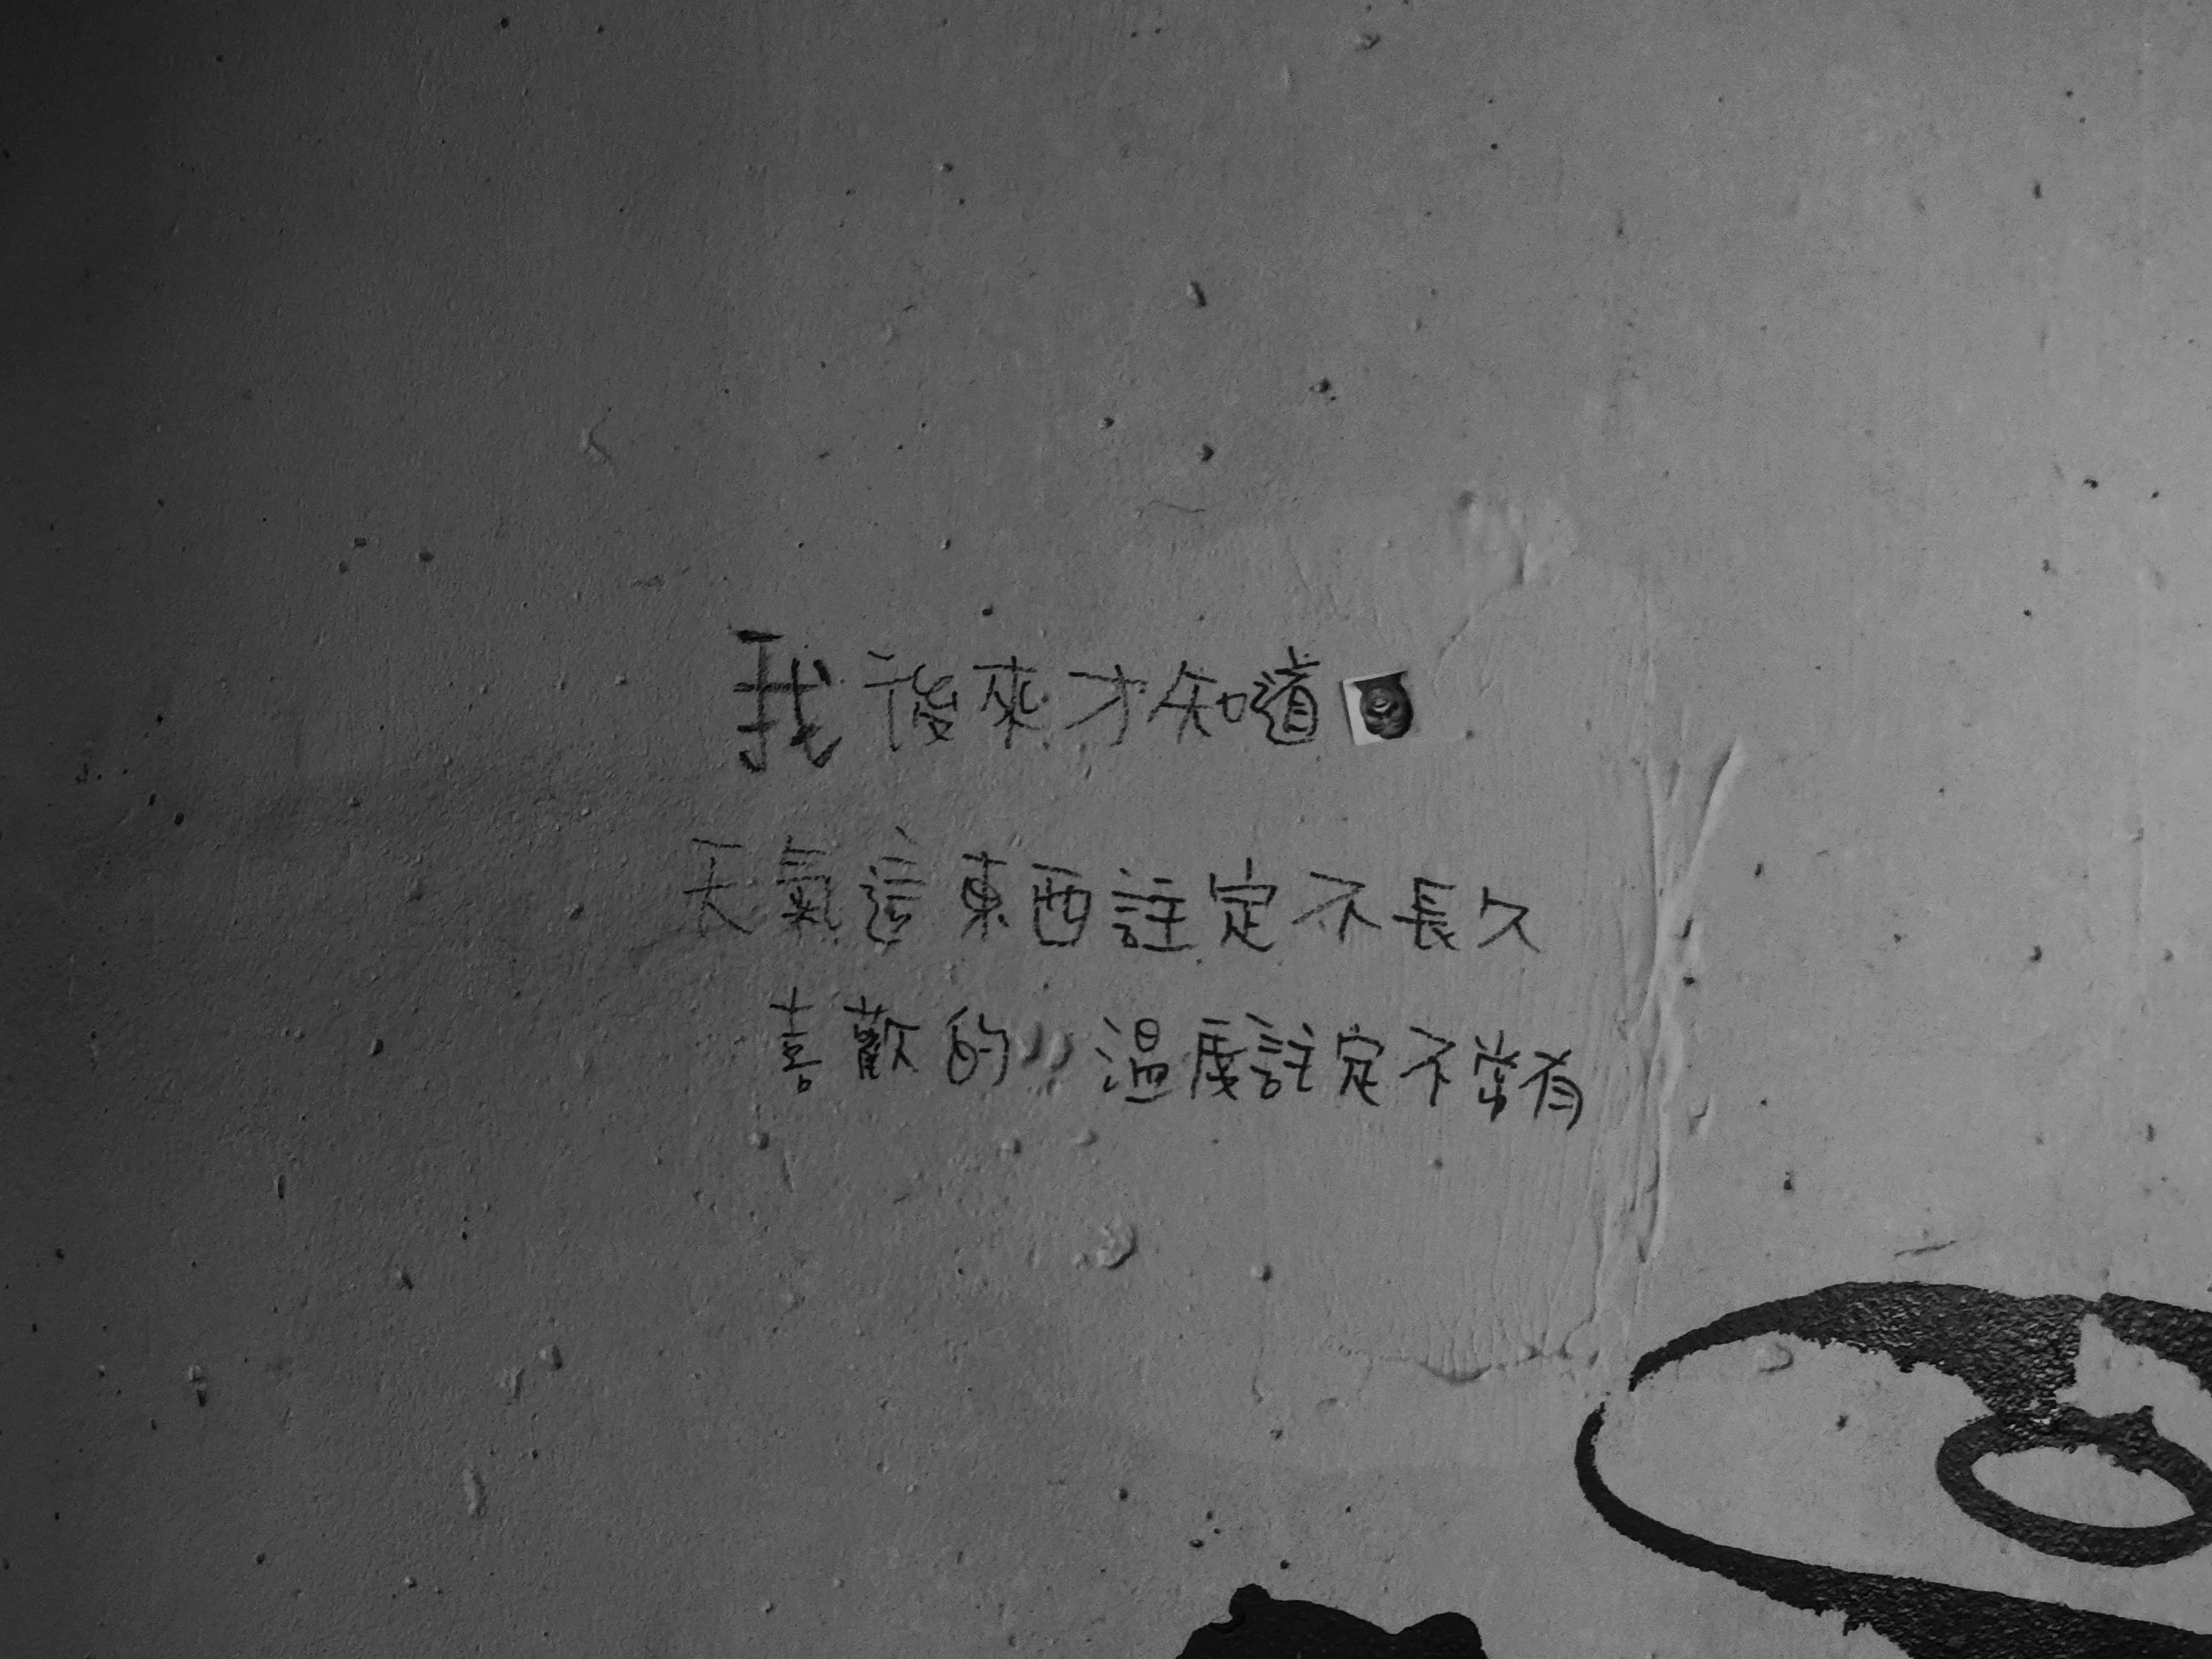 我後來才知道
天氣這東西註定不長久
喜歡的溫度註定不常有